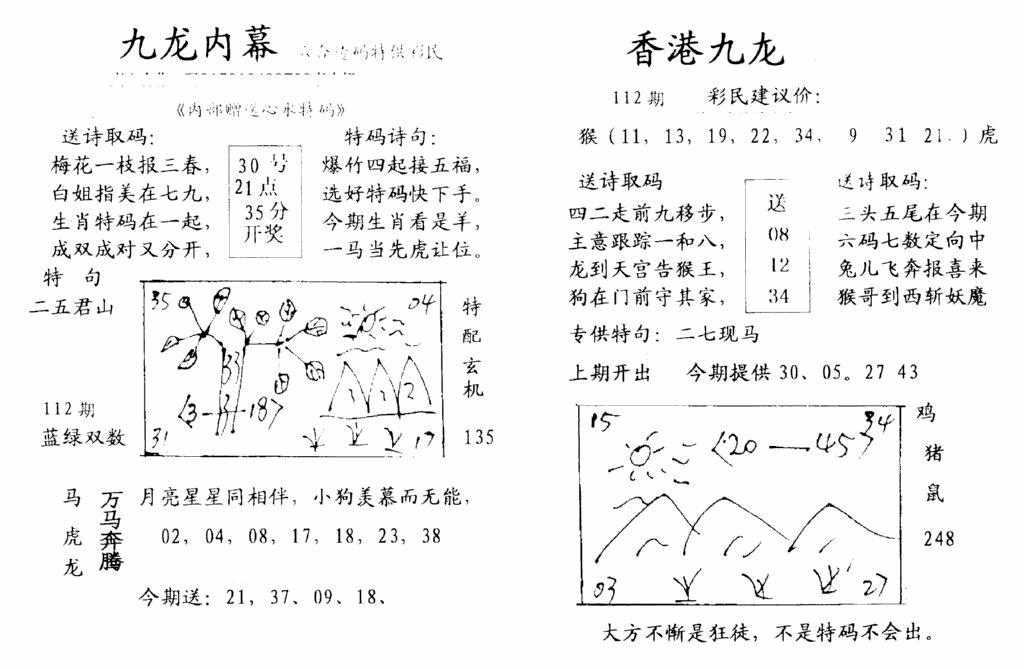 九龙内幕
码特供彩民
《内部赠送心水特码》
送诗取码：
梅花一枝报三春，
白姐指美在七九，
生肖特码在一起，
成双成对又分开，
30号
21点
35分
开奖
特码诗句：
爆竹四起接五福，
选好特码快下手。
今期生肖看是羊，
一马当先虎让位。
特句
二五君山
112期
蓝绿双数
35
04
33
31
17
特配玄机
135
马虎龙
万马奔腾
月亮星星同相伴，小狗羡慕而无能，
02，04，08，17，18，23，38
今期送：21，37、09、18、
香港九龙
112期 彩民建议价：
猴（11，13，19，22，34， 9 31 21.）虎
送诗取码
四二走前九移步，
主意跟踪一和八，
龙到天宫告猴王，
狗在门前守其家，
送
08
12
34
送诗取码：
三头五尾在今期
六码七数定向中
兔儿飞奔报喜来
猴哥到西斩妖魔
专供特句：二七现马
上期开出 今期提供 30、05。27 43
15
34
20—45
03
27
鸡猪鼠
248
大方不惭是狂徒，不是特码不会出。